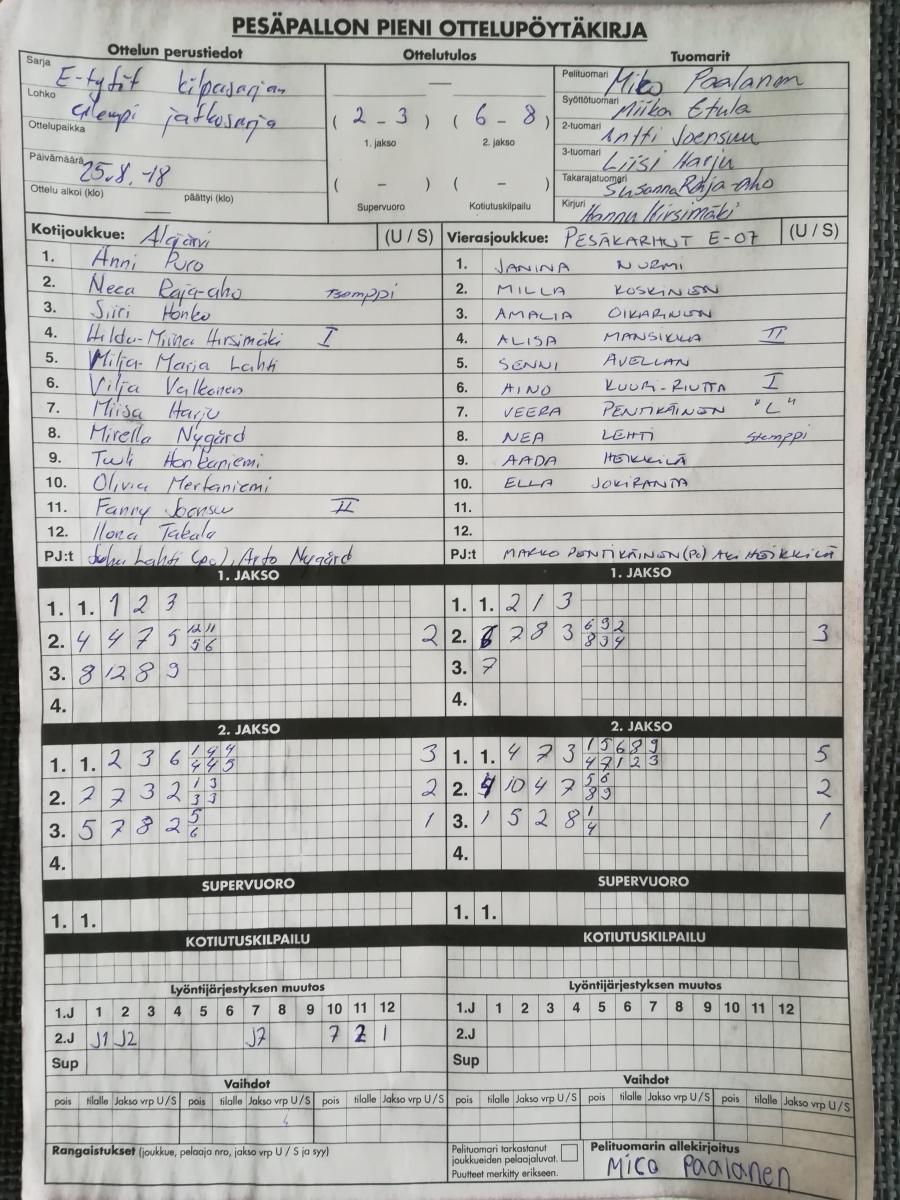 PESÄPALLON PIENI OTTELUPÖYTÄKIRJA
Ottelun perustiedot
Sarja E-tytöt kilpasarjan
Lohko ylempi jatkosarja
Ottelupaikka
Päivämäärä 25.8.-18
Ottelu alkoi (klo) — päättyi (klo)
Ottelutulos
—
( 2 - 3 ) ( 6 - 8 )
1. jakso 2. jakso
( - ) ( - )
Supervuoro Kotiutuskilpailu
Tuomarit
Pelituomari Mico Paalanen
Syöttötuomari Miika Etula
2-tuomari Antti Joensuu
3-tuomari Liisi Harju
Takarajatuomari Susanna Raja-aho
Kirjuri Hannu Hirsimäki
Kotijoukkue: Alajärvi (U / S)
1. Anni Puro
2. Neea Raja-aho Tsemppi
3. Siiri Honko
4. Hilda-Miina Hirsimäki I
5. Milja-Marja Lahti
6. Vilja Valkonen
7. Miisa Harju
8. Mirella Nygård
9. Tuuli Honkaniemi
10. Olivia Mertaniemi
11. Fanny Joensuu II
12. Ilona Takala
PJ:t Juha Lahti (pc), Arto Nygård
Vierasjoukkue: PESÄKARHUT E-07 (U / S)
1. JANINA NURMI
2. MILLA KOSKINEN
3. AMALIA OIKARINEN
4. ALISA MANSIKKA II
5. SENNI AVELLAN
6. AINO KUURI-RIUTTA I
7. VEERA PENTIKÄINEN "L"
8. NEA LEHTI Stemppi
9. AADA HEIKKILÄ
10. ELLA JOKIRANTA
11.
12.
PJ:t MARKO PENTIKÄINEN (PC) AKI HEIKKILÄ
1. JAKSO
1. 1. 1 2 3
2. 4 4 7 5 12 11 2
5 6
3. 8 12 8 9
4.
1. JAKSO
1. 1. 2 1 3
2. 6 7 8 3 6 9 2 3
8 9 4
3. 7
4.
2. JAKSO
1. 1. 2 3 6 1 4 4 3
4 4 5
2. 7 7 3 2 1 3 2
3 3
3. 5 7 8 2 5 1
6
4.
2. JAKSO
1. 1. 4 7 3 1 5 6 8 9 5
4 7 1 2 3
2. 4 10 4 7 5 6 2
8 9
3. 1 5 2 8 1 1
4
4.
SUPERVUORO
1. 1.
SUPERVUORO
1. 1.
KOTIUTUSKILPAILU
KOTIUTUSKILPAILU
Lyöntijärjestyksen muutos
1.J 1 2 3 4 5 6 7 8 9 10 11 12
2.J J1 J2 J7 7 2 1
Sup
Lyöntijärjestyksen muutos
1.J 1 2 3 4 5 6 7 8 9 10 11 12
2.J
Sup
Vaihdot
pois tilalle Jakso vrp U / S pois tilalle Jakso vrp U / S pois tilalle Jakso vrp U / S
Vaihdot
pois tilalle Jakso vrp U / S pois tilalle Jakso vrp U / S pois tilalle Jakso vrp U / S
Rangaistukset (joukkue, pelaaja nro, jakso vrp U / S ja syy)
Pelituomari tarkastanut
joukkueiden pelaajaluvat.
Puutteet merkitty erikseen.
Pelituomarin allekirjoitus
Mico Paalanen